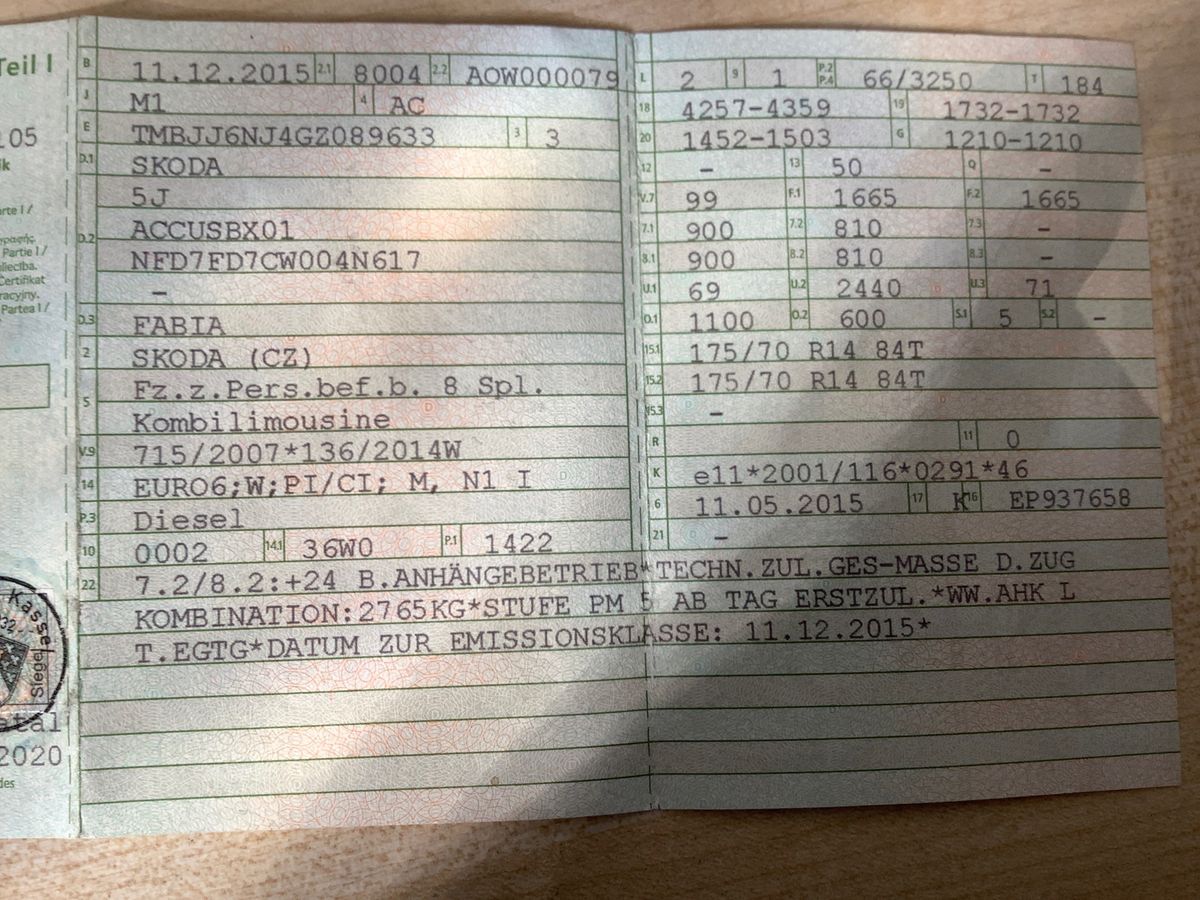 Teil I
105
ik
rte I /
γραφής
Partie I /
liecība.
Certifikat
racyjny.
Partea I /
Kassel
32
Siegel
atal
2020
des
B 11.12.2015 2.1 8004 2.2 AOW000079
J M1 4 AC
E TMBJJ6NJ4GZ089633 3 3
D.1 SKODA
5J
D.2 ACCUSBX01
NFD7FD7CW004N617
–
D.3 FABIA
2 SKODA (CZ)
5 Fz.z.Pers.bef.b. 8 Spl.
Kombilimousine
V.9 715/2007*136/2014W
14 EURO6;W;PI/CI; M, N1 I
P.3 Diesel
10 0002 14.1 36W0 P.1 1422
L 2 9 1 P.2 P.4 66/3250 T 184
18 4257-4359 19 1732-1732
20 1452-1503 G 1210-1210
12 – 13 50 Q –
V.7 99 F.1 1665 F.2 1665
7.1 900 7.2 810 7.3 –
8.1 900 8.2 810 8.3 –
U.1 69 U.2 2440 U.3 71
O.1 1100 O.2 600 S.1 5 S.2 –
15.1 175/70 R14 84T
15.2 175/70 R14 84T
15.3 –
R 11 0
K e11*2001/116*0291*46
6 11.05.2015 17 K 16 EP937658
21 –
22 7.2/8.2:+24 B.ANHÄNGEBETRIEB*TECHN.ZUL.GES-MASSE D.ZUG
KOMBINATION:2765KG*STUFE PM 5 AB TAG ERSTZUL.*WW.AHK L
T.EGTG*DATUM ZUR EMISSIONSKLASSE: 11.12.2015*